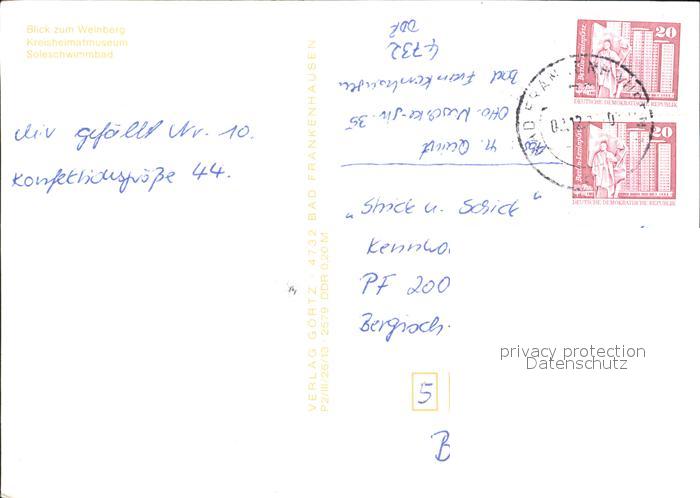 Blick zum Weinberg
Kreisheimatmuseum
Soleschwimmbad
mir gefällt Nr. 10.
Konfektionsgröße 44.
VERLAG GÖRTZ · 4732 BAD FRANKENHAUSEN
P2/III/26/13 · 2579 DDR 0,20 M
35
Bad Frankenhausen
4732
DDR
20
Berlin-Leninplatz
DEUTSCHE DEMOKRATISCHE REPUBLIK
20
Berlin-Leninplatz
DEUTSCHE DEMOKRATISCHE REPUBLIK
BAD FRANKENHAUSEN
„Strick u. Schick"
PF 200
Bergisch.
5
B
privacy protection
Datenschutz